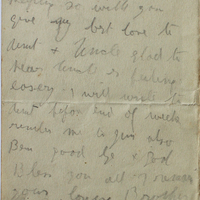 so will you
give my best love to
Aunt & Uncle glad to
hear Aunt is feeling
easier. I will write to
Aunt before end of week
remember me to Jim also
Ben good bye & God
Bless you all
your loving Brother